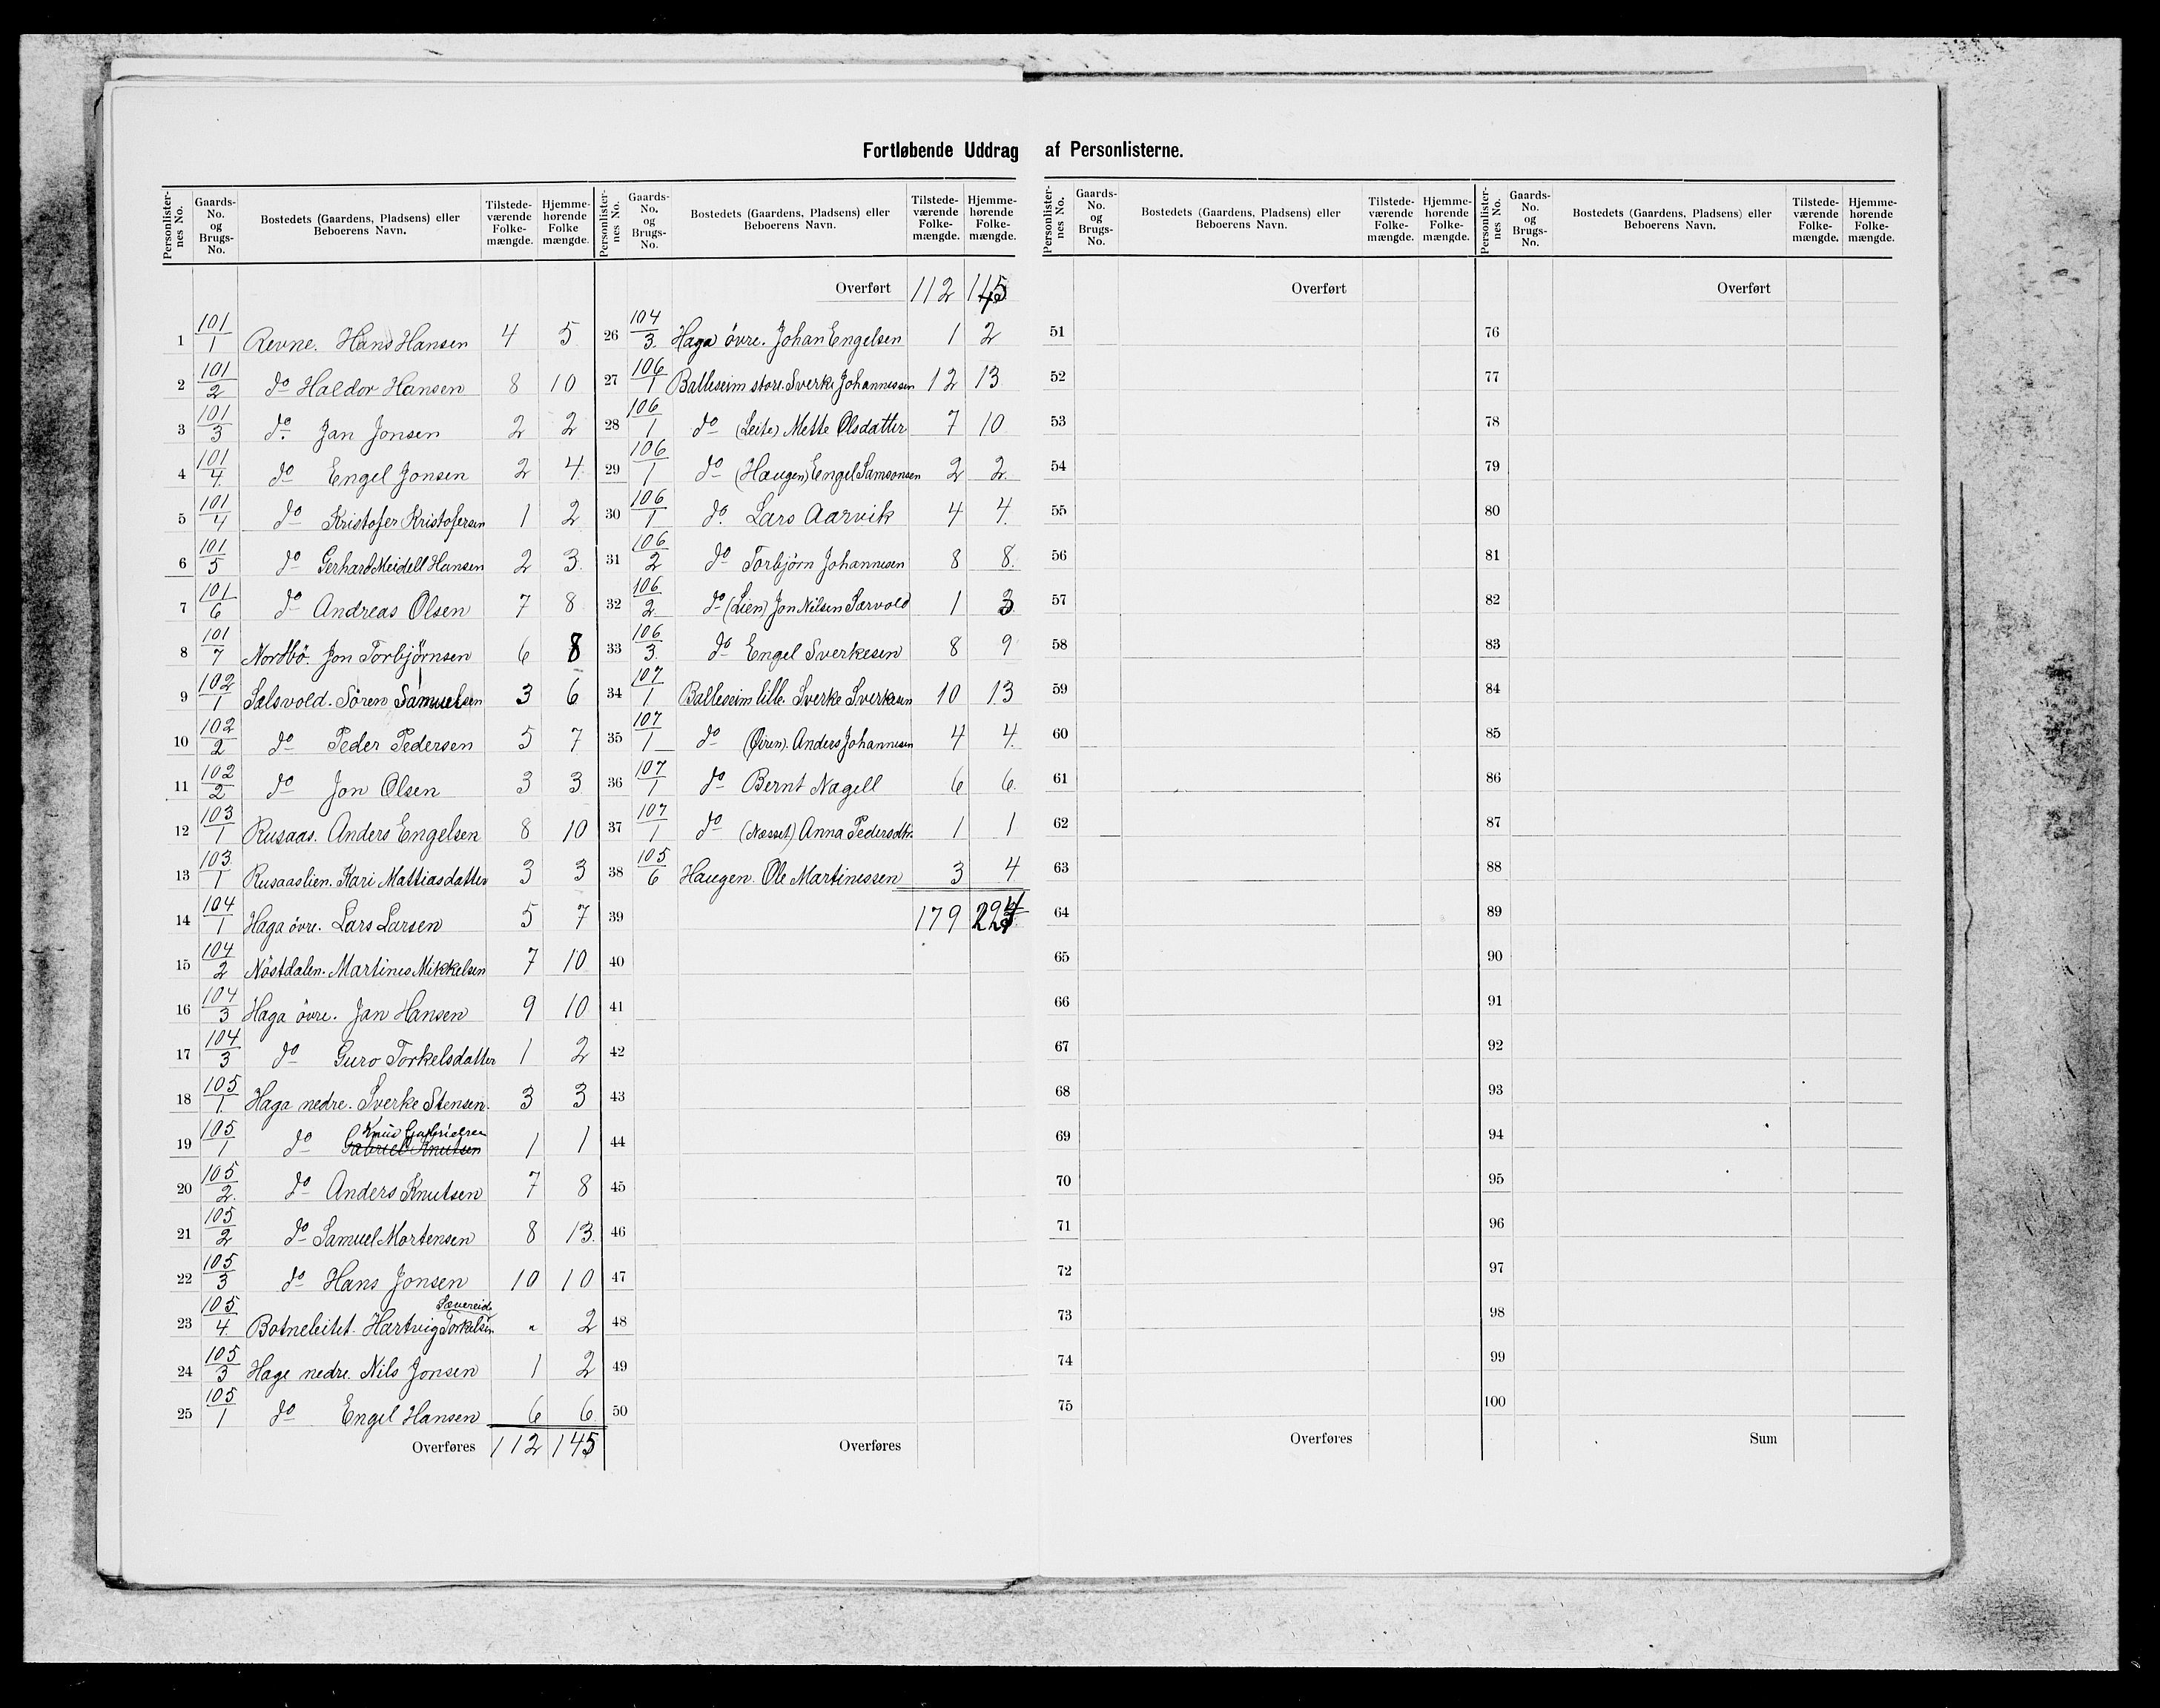 Fortløbende Uddrag af Personlisterne.
Personlisternes No. | Gaards-No. og Brugs-No. | Bostedets (Gaardens, Pladsens) eller Beboerens Navn. | Tilstedeværende Folkemængde. | Hjemmehørende Folke mængde.
1 | 101/1 | Revne. Hans Hansen | 4 | 5
2 | 101/2 | do Haldor Hansen | 8 | 10
3 | 101/3 | do. Jan Jonsen | 2 | 2
4 | 101/4 | do Engel Jonsen | 2 | 4
5 | 101/4 | do Kristofer Kristofersen | 1 | 2
6 | 101/5 | do Gerhard Meidell Hansen | 2 | 3.
7 | 101/6 | do Andreas Olsen | 7 | 8
8 | 101/7 | Nordbö. Jon Torbjörnsen | 6 | 8
9 | 102/1 | Salsvold. Sören Samuelsen | 3 | 6
10 | 102/2 | do Peder Pedersen | 5 | 7
11 | 102/2 | do Jon Olsen | 3 | 3
12 | 103/1 | Rusaas. Anders Engelsen | 8 | 10
13 | 103/1 | Rusaaslien. Kari Mattiasdatter | 3 | 3
14 | 104/1 | Haga övre. Lars Larsen | 5 | 7
15 | 104/2 | Nöstdalen. Martines Mikkelsen | 7 | 10
16 | 104/3 | Haga övre. Jan Hansen | 9 | 10
17 | 104/3 | do Guro Torkelsdatter | 1 | 2
18 | 105/1 | Haga nedre. Sverke Stensen. | 3 | 3
19 | 105/1 | do Knud Gabrielsen Gabriel Knutsen | 1 | 1
20 | 105/2. | do Anders Knutsen | 7 | 8
21 | 105/2 | do Samuel Mortensen | 8 | 13.
22 | 105/3 | do Hans Jonsen | 10 | 10
23 | 105/4. | Botneleitet. Hartvig Torkelsen Sævereide | " | 2
24 | 105/3 | Hage nedre. Nils Jonsen | 1 | 2
25 | 105/1 | do Engel Hansen | 6 | 6.
Overføres | 112 | 145
Personlisternes No. | Gaards-No. og Brugs-No. | Bostedets (Gaardens, Pladsens) eller Beboerens Navn. | Tilstedeværende Folkemængde. | Hjemmehørende Folkemængde.
Overført | 112 | 145
26 | 104/3. | Haga övre. Johan Engelsen | 1 | 2
27 | 106/1 | Balleseim store. Sverke Johannessen | 12 | 13
28 | 106/1 | do (Leite) Mette Olsdatter | 7 | 10
29 | 106/1 | do (Haugen) Engel Samsonsen | 2 | 2
30 | 106/1 | do. Lars Aarvik | 4 | 4.
31 | 106/2 | do Torbjörn Johannesen | 8 | 8.
32 | 106/2 | do (Lien) Jon Nilsen Sarvold | 1 | 3
33 | 106/3. | do Engel Sverkesen | 8 | 9
34 | 107/1 | Balleseim lille. Sverke Sverkesen | 10 | 13
35 | 107/1 | do (Øiren). Anders Johannesen | 4 | 4.
36 | 107/1 | do Bernt Nagell | 6 | 6.
37 | 107/1 | do (Næsset) Anna Pedersdtr. | 1 | 1
38 | 105/6 | Haugen. Ole Martinessen | 3 | 4.
39 | 179 | 224
40
41
42
43
44
45
46
47
48
49
50
Overføres
Personlisternes No. | Gaards-No. og Brugs-No. | Bostedets (Gaardens, Pladsens) eller Beboerens Navn. | Tilstedeværende Folkemængde. | Hjemmehørende Folkemængde.
Overført
51
52
53
54
55
56
57
58
59
60
61
62
63
64
65
66
67
68
69
70
71
72
73
74
75
Overføres
Personlisternes No. | Gaards-No. og Brugs-No. | Bostedets (Gaardens, Pladsens) eller Beboerens Navn. | Tilstedeværende Folkemængde. | Hjemmehørende Folkemængde.
Overført
76
77
78
79
80
81
82
83
84
85
86
87
88
89
90
91
92
93
94
95
96
97
98
99
100
Sum